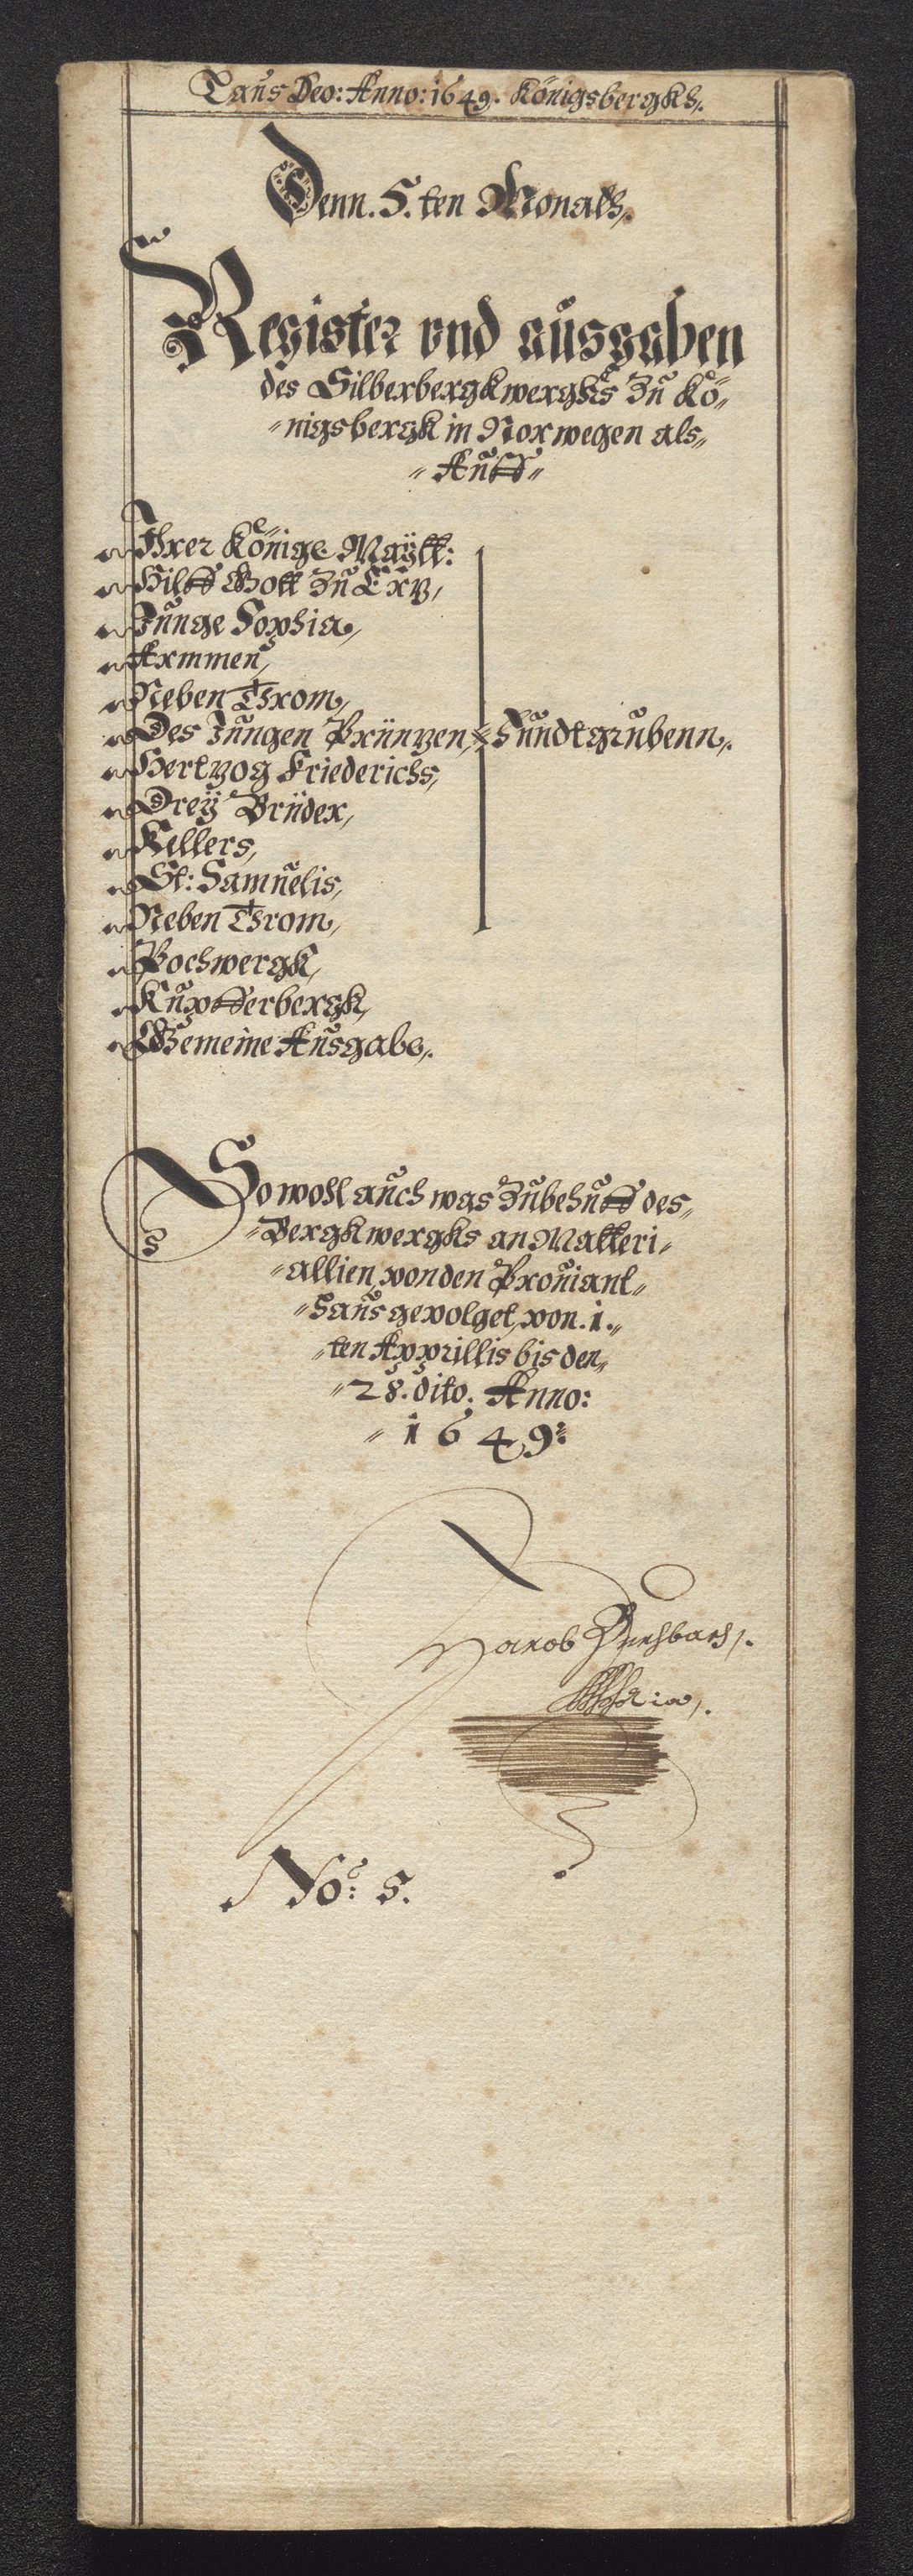 Laus Deo: Anno: 1649. Königsbergks,.
Denn. 5. ten Monats,.
Register vnd ausgaben
des Silberbergkwergks zu Kö„
„nigsbergk in Norwegen als„
„Auff„
Ihrer Königs Maÿtt:
Hilff Gott zu Ertz,
Junge Sophia,
Armmen,
Neben Throm,
Des Jungen Printzen, Fundtgrubenn,.
Hertzog Friederichs,
Dreÿ Brüder,
Kellers,
St: Samuelis,
Neben Throm,
Pochwergk,
Kupfferbergk,
Gemeine Ausgabe,.
So woll auch was zu behuff des„
„Bergkwergks an Matteri„
„allien, von den Prouiant„
„haus gevolget, von. 1.„
„ten Apprillis bis den„
„28. dito. Anno:
„1649:
Jacob
No: 5.